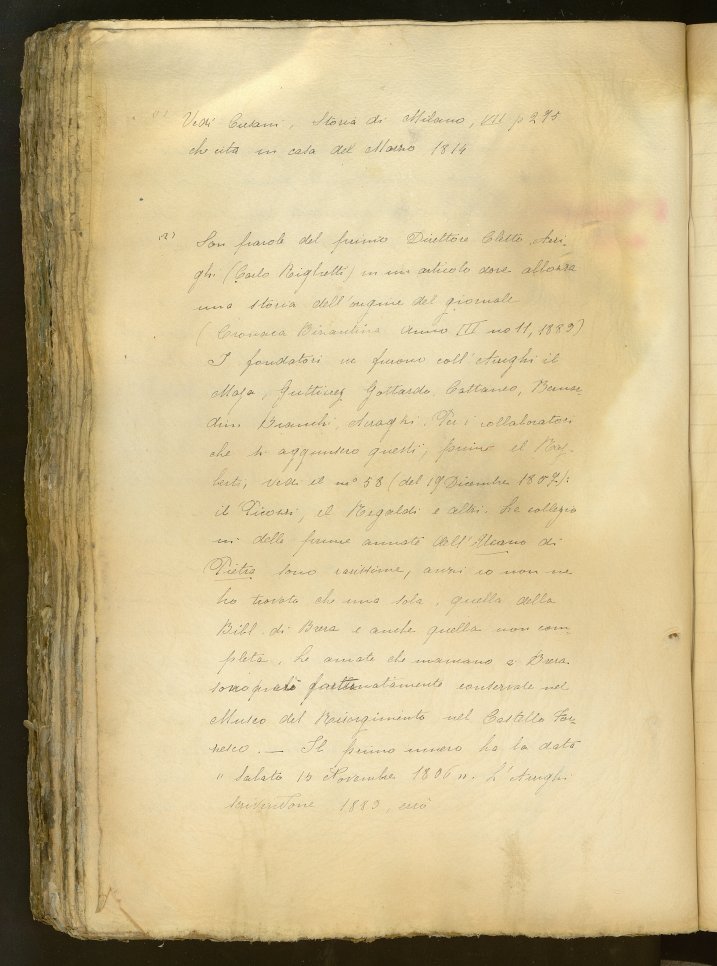 (1) Vedi Cusani, Storia di Milano, VII p 295
che cita in casa del Marzo 1814
(2) Son parole del primo Direttore Cletto Arri-
ghi (Carlo Righetti) in un articolo dove abbozza
una storia dell'origine del giornale
(Cronaca Bizantina Anno III no 11, 1883)
I fondatori ne furono coll'Arrighi il
Gottardo Cattaneo, Bernar-
dino Bianchi, Per i collaboratori
che si aggiunsero questi, primo il Raj-
berti, vedi il no 58 (del 19 Dicembre 1857):
il Picozzi, il Regaldi e altri. Le collezio
ni delle prime annate dell'Uomo di
Pietra sono rarissime, anzi io non ne
ho trovata che una sola, quella della
Bibl. di Brera e anche quella non com-
pleta. Le annate che mancano a Brera
sono però fortunatamente conservate nel
Museo del Risorgimento nel Castello Sfor-
zesco. — Il primo numero ha la data
"Sabato 15 Novembre 1856". L'Arrighi
1883,